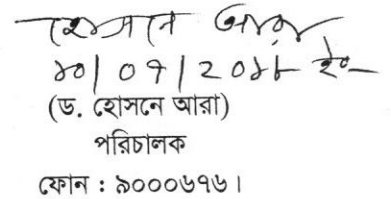 হোসনে আরা
১০/০৭/২০১৮ ইং
(ড. হোসনে আরা)
পরিচালক
ফোন : ৯০০০৬৭৬।